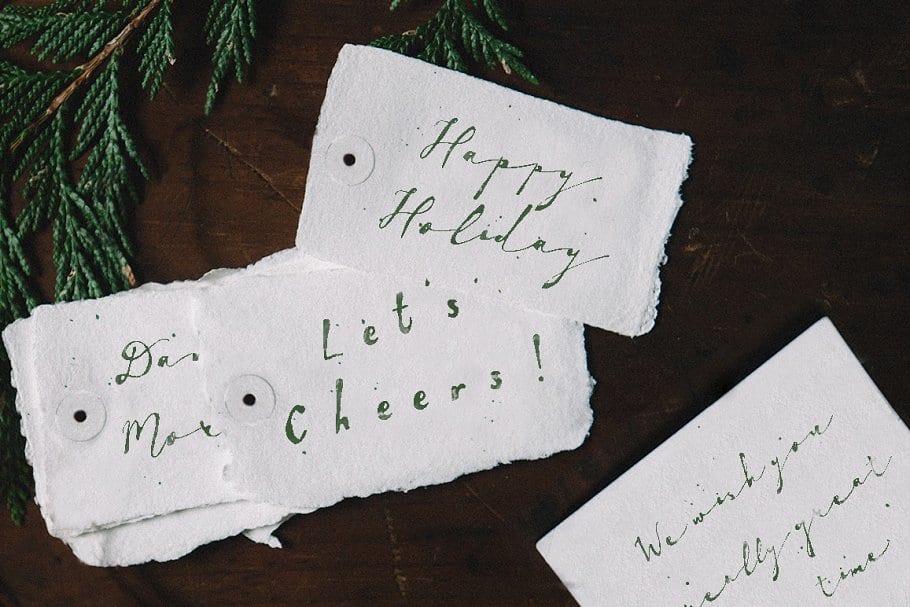 Happy
Holiday
Let's
Cheers!
We wish you
really great
time